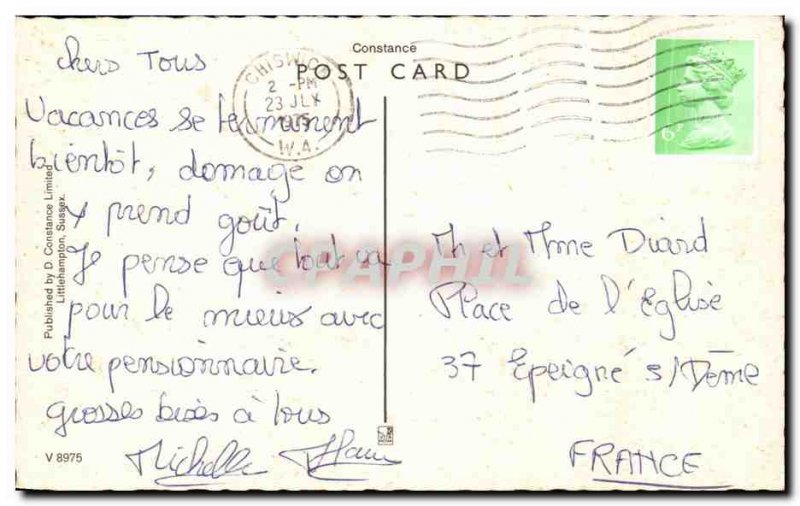 Constance
POST CARD
CHISWICK
2 - PM
23 JLY
1975
W.4.
6P
chers Tous
Vacances se terminent
bientôt, domage on
y prend goût.
Je pense que tout va
pour le mieux avec
votre pensionnaire.
grosses bises à tous
Michelle
Mr et Mme Diard
Place de l'Eglise
37 Epeigné s/Dême
FRANCE
Published by D. Constance Limited
Littlehampton, Sussex.
V 8975
CPAPHIL